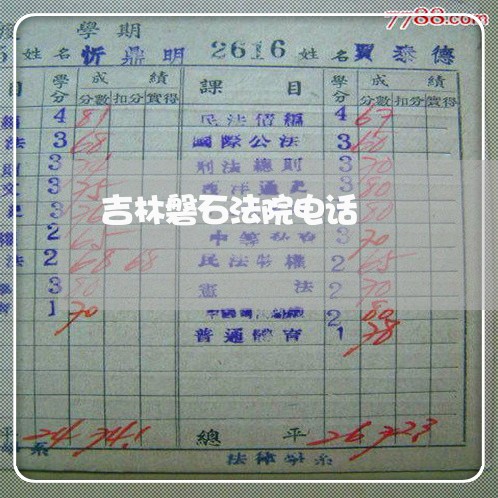 7788.com
學期
姓名 忻鼎明 2616 姓名 賈泰德
目 學分 成績 課目 學分 成績
分數 扣分 實得 分數 扣分 實得
4 81 民法債編 4 67
法 3 68 國際公法 3 60
3 刑法總則 3 70
文 3 75 西洋通史 3 80
吉林磐石法院电话
2 65 3 70
法 2 68 68 民法物權 2 65
3 80 憲法 2 70
1 70 2 80
普通體育 1 78
平 24 74.1 總平 26 72.3
系 法律學系